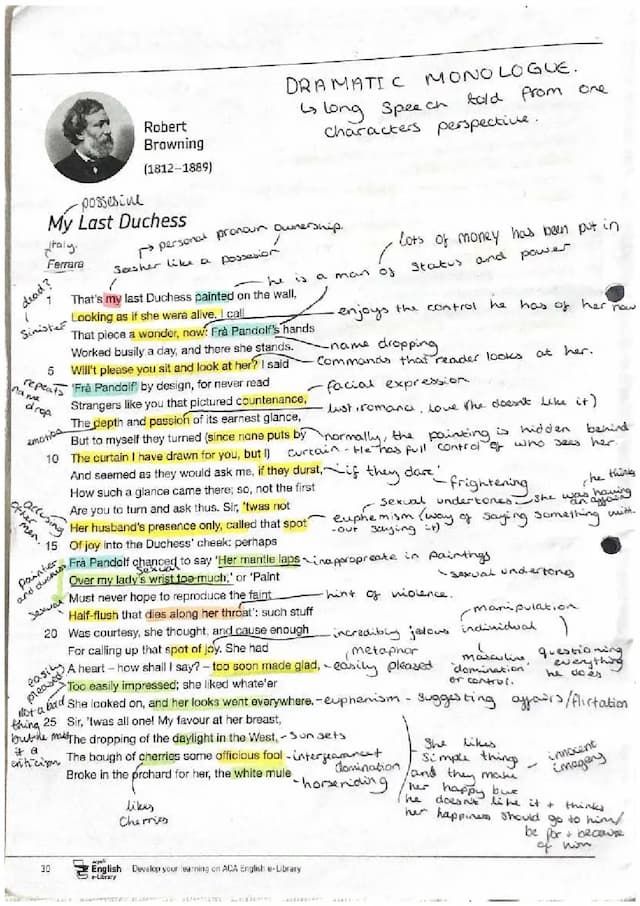 DRAMATIC MONOLOGUE.
↳ long speech told from one
characters perspective.
Robert
Browning
(1812–1889)
possesive
My Last Duchess
Italy.
Ferrara
→ personal pronoun ownership.
seesher like a possesion
lots of money has been put in
he is a man of status and power
dead?
1 That's my last Duchess painted on the wall,
Looking as if she were alive. I call
enjoys the control he has of her now
Sinister
That piece a wonder, now: Frà Pandolf's hands
Worked busily a day, and there she stands.
name dropping
5 Will't please you sit and look at her? I said
Commands that reader looks at her.
repeats
name
drop
'Frà Pandolf' by design, for never read
facial expression
Strangers like you that pictured countenance,
The depth and passion of its earnest glance,
lust, romance, love (he doesnt like it)
emotion
But to myself they turned (since none puts by
normally, the painting is hidden behind
10 The curtain I have drawn for you, but I)
curtain - He has full control of who sees her.
And seemed as they would ask me, if they durst,
'if they dare'
How such a glance came there; so, not the first
frightening
he thinks
she was having
an affair
Are you to turn and ask thus. Sir, 'twas not
sexual undertones
accusing
other
men.
Her husband's presence only, called that spot
euphemism (way of saying something with-
-out saying it)
15 Of joy into the Duchess' cheek: perhaps
painter
and duchess
Frà Pandolf chanced to say 'Her mantle laps
inappropreate in paintings
sexual
Over my lady's wrist too much,' or 'Paint
sexual undertones
Must never hope to reproduce the faint
hint of violence.
sexual
Half-flush that dies along her throat': such stuff
manipulation
20 Was courtesy, she thought, and cause enough
incredibly jelous individual
For calling up that spot of joy. She had
metaphor
masculine
'domination'
or control.
questioning
everything
he does
A heart – how shall I say? – too soon made glad,
easily pleased
easily
pleased
Too easily impressed; she liked whate'er
She looked on, and her looks went everywhere.
euphemism - suggesting affairs/flirtation
not a bad
thing
but he makes
it a
criticism
25 Sir, 'twas all one! My favour at her breast,
The dropping of the daylight in the West,
sunsets
The bough of cherries some officious fool
interfearance
domination
Broke in the orchard for her, the white mule
horseriding
likes
cherries
She likes
simple things
and they make
her happy but
he doesnt like it + thinks
her happiness should go to him/
be for + because
of him
innocent
imagery
30
English
e-Library
Develop your learning on AQA English e-Library